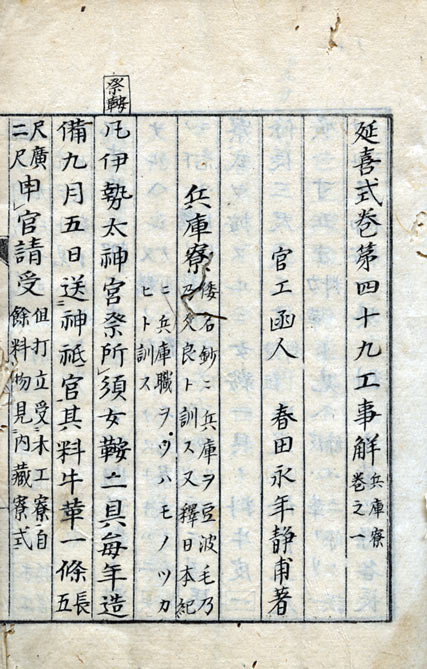 延喜式巻第四十九工事解 兵庫寮
巻之一
官工函人 春田永年静甫著
兵庫寮 倭名鈔ニ兵庫ヲ豆波毛乃
乃久良ト訓ス又釋日本紀
ニ兵庫職ヲツハモノツカ
ヒト訓ス
祭鞍
凡伊勢太神宮祭所」須女鞍二具毎年造
備九月五日送神祇官其料牛革一條長五
尺廣
二尺申」官請受 但打立受木工寮自
餘料物見内藏寮式